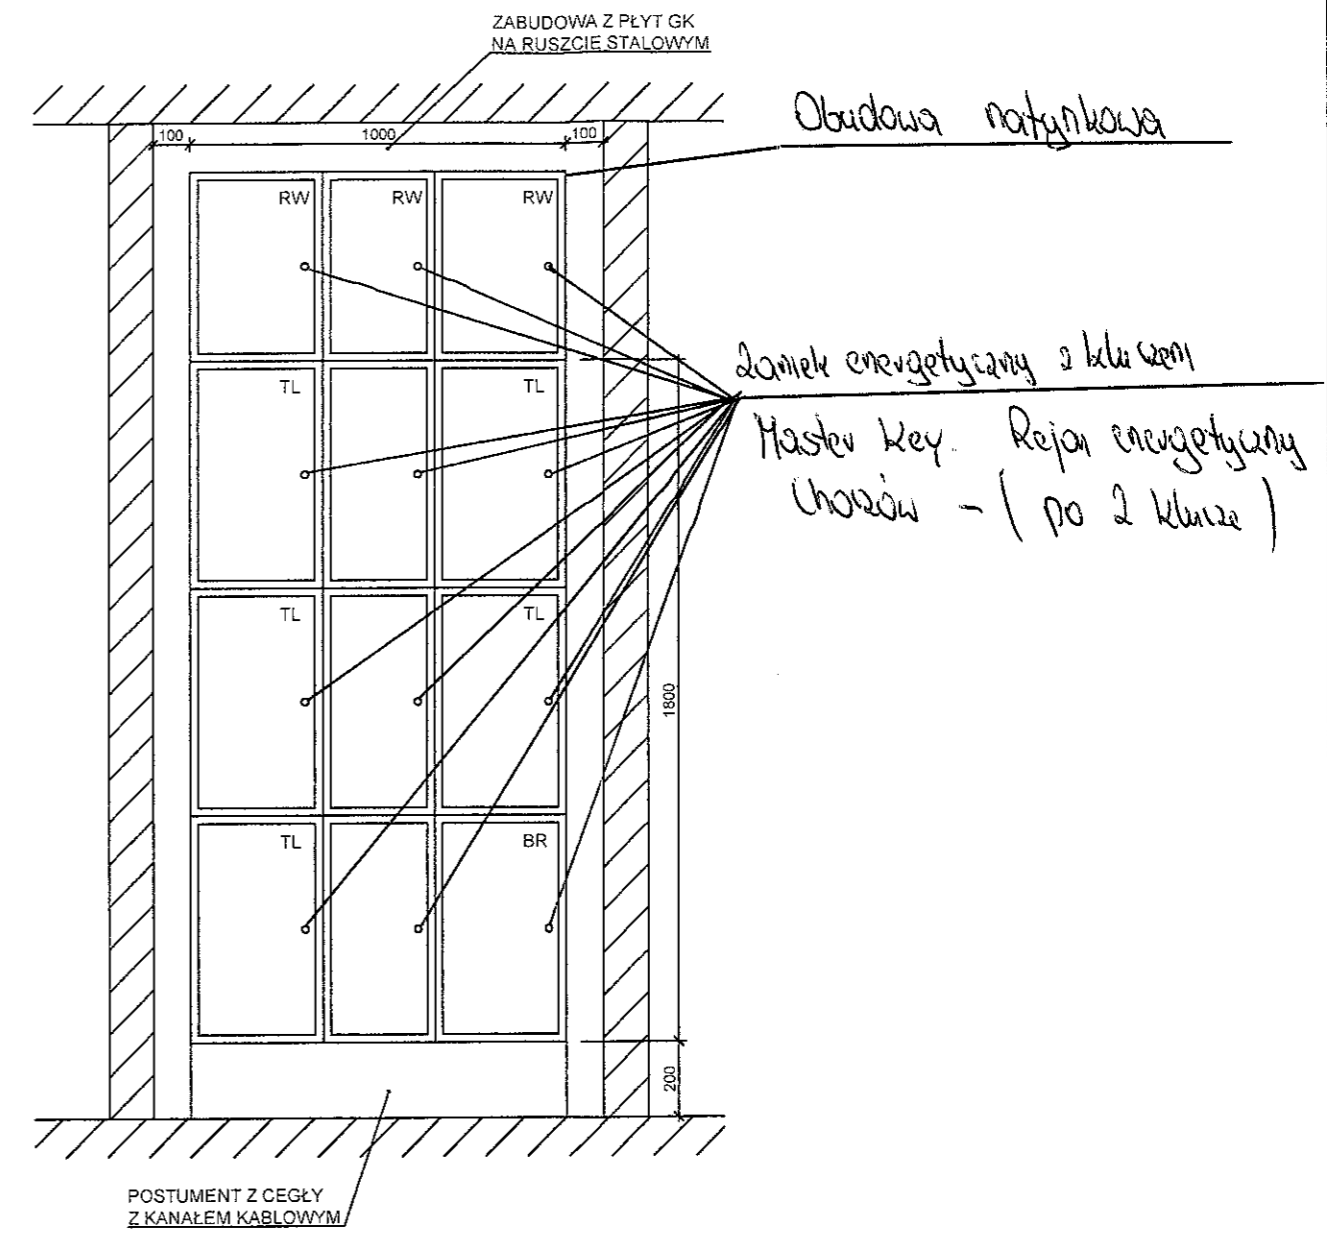 ZABUDOWA Z PŁYT GK
NA RUSZCIE STALOWYM
Obudowa natynkowa
100 1000 100
RW RW RW
Zamek energetyczny z kluczem
TL TL
Master Key. Rejon energetyczny
Chorzów - (po 2 klucze)
TL TL
1800
TL BR
200
POSTUMENT Z CEGŁY
Z KANAŁEM KABLOWYM